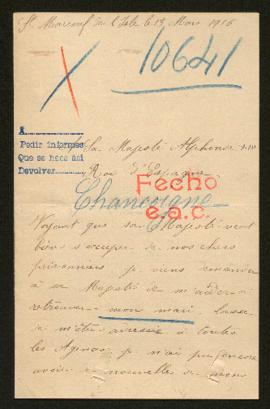 St Marceuf sur l'Isle le 13 Mars 1916
10641
A
Pedir informes
Que se hace así
Devolver
Sa Majesté Alphonse XIII
Roi d'Espagne
Fecho
e.a.c.
Chancogne
Voyant que sa Majesté veut
bien s'occuper de nos chers
prisonniers je viens demander
à sa Majesté de m'aider à
retrouver mon mari
de m'être adressée à toutes
les Agences je n'ai pu encore
avoir de nouvelle de mon